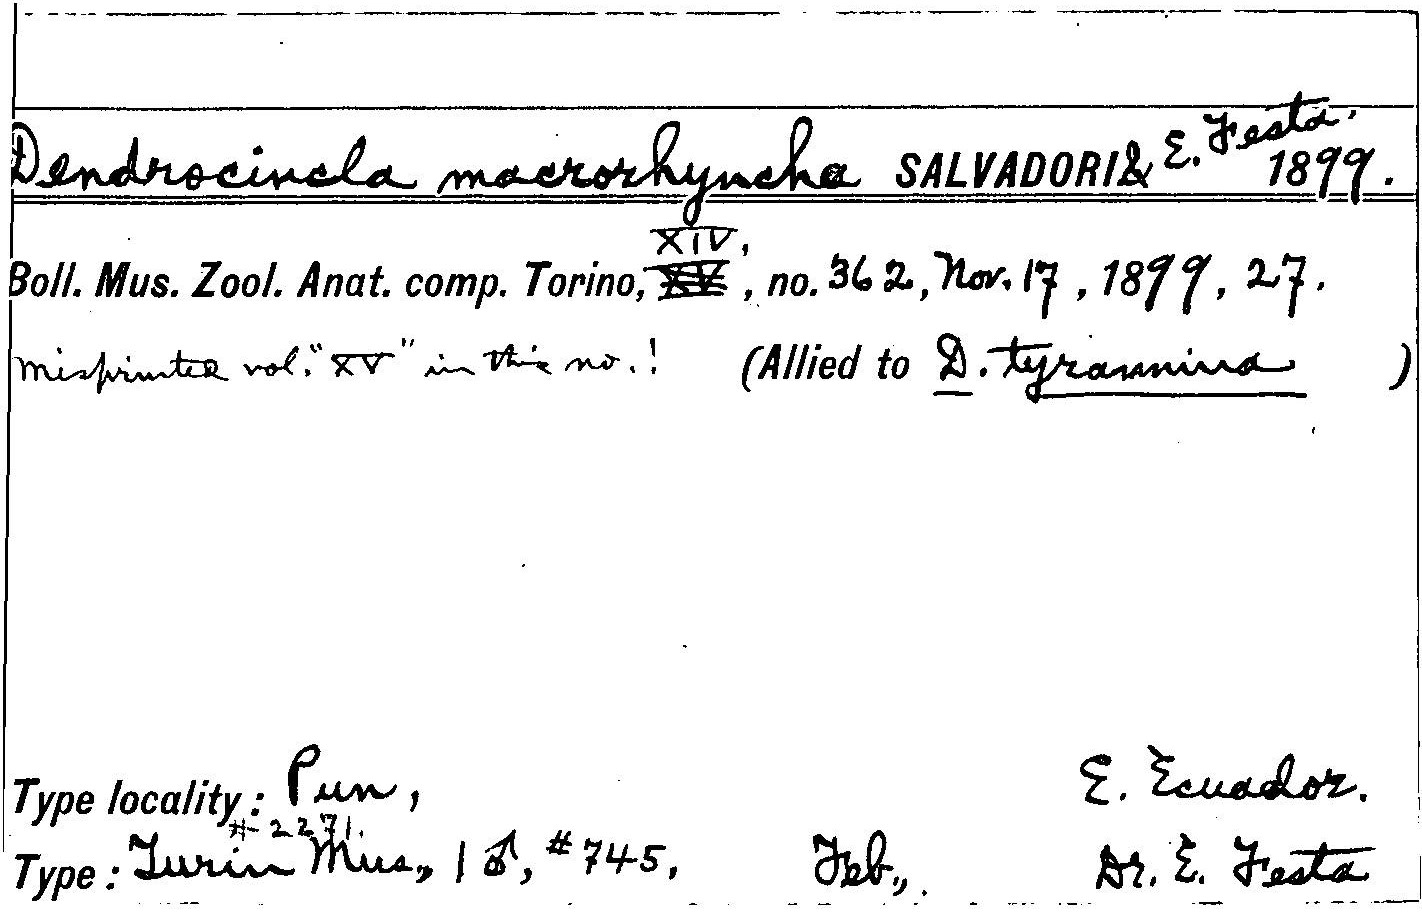 Dendrocincla macrorhyncha SALVADORI & E. Festa. 1899.
XIV,
Boll. Mus. Zool. Anat. comp. Torino, XV, no. 362, Nov. 17, 1899, 27.
misprinted vol. "XV" in this no.! (Allied to D. tyrannina )
Type locality: Pun, E. Ecuador.
# 2271.
Type: Turin Mus., 1 ♂, #745, Feb., Dr. E. Festa